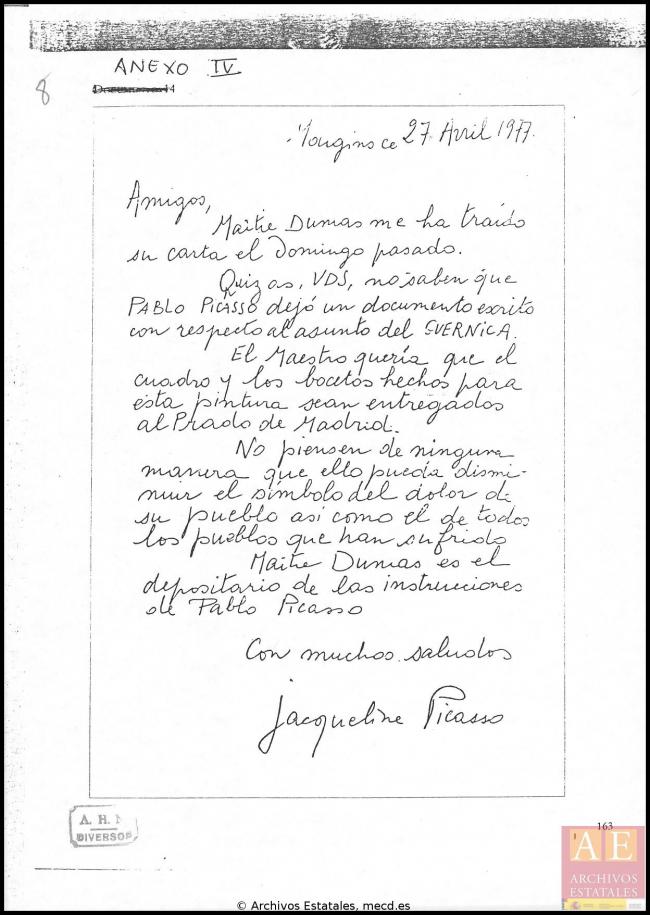 ANEXO IV
8
Mougins ce 27 Avril 1977.
Amigos,
Maitre Dumas me ha traído
su carta el Domingo pasado.
Quizas, VDS, no saben que
PABLO PICASSO dejó un documento escrito
con respecto al asunto del GUERNICA.
El Maestro quería que el
cuadro y los bocetos hechos para
esta pintura sean entregados
al Prado de Madrid.
No piensen de ninguna
manera que ello pueda dismi-
nuir el símbolo del dolor de
su pueblo así como el de todos
los pueblos que han sufrido
Maitre Dumas es el
depositario de las instrucciones
de Pablo Picasso
Con muchos saludos
Jacqueline Picasso
A. H.
DIVERSOS
163
A E
ARCHIVOS
ESTATALES
© Archivos Estatales, mecd.es